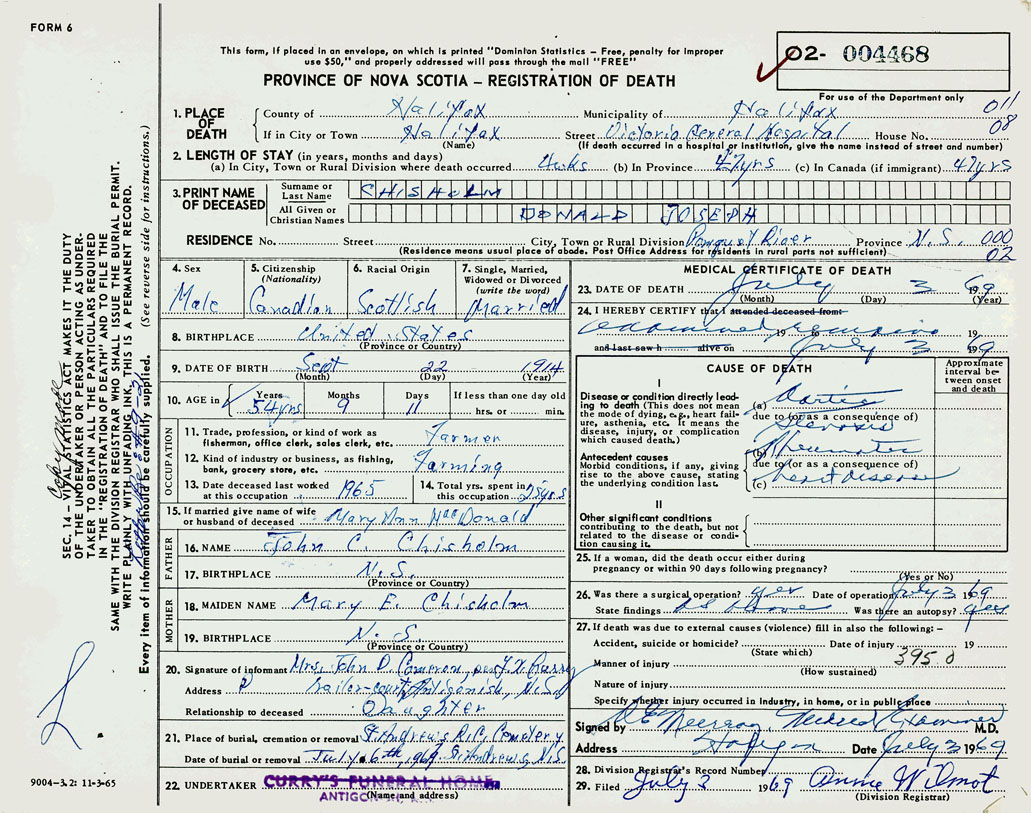 FORM 6
This form, if placed in an envelope, on which is printed "Dominion Statistics – Free, penalty for improper
use $50," and properly addressed will pass through the mail "FREE"
PROVINCE OF NOVA SCOTIA – REGISTRATION OF DEATH
02- 004468
For use of the Department only
1. PLACE OF DEATH County of Halifax Municipality of Halifax 011
If in City or Town Halifax Street Victoria General Hospital House No. 08
(Name) (If death occurred in a hospital or institution, give the name instead of street and number)
2. LENGTH OF STAY (in years, months and days)
(a) In City, Town or Rural Division where death occurred 4wks (b) In Province 47yrs (c) In Canada (if immigrant) 47yrs
3. PRINT NAME OF DECEASED Surname or Last Name CHISHOLM
All Given or Christian Names DONALD JOSEPH
RESIDENCE No. Street City, Town or Rural Division Pomquet River Province N.S. 000
(Residence means usual place of abode. Post Office Address for residents in rural parts not sufficient) 02
4. Sex Male
5. Citizenship (Nationality) Canadian
6. Racial Origin Scottish
7. Single, Married, Widowed or Divorced (write the word) Married
8. BIRTHPLACE United States
(Province or Country)
9. DATE OF BIRTH Sept 22 1914
(Month) (Day) (Year)
10. AGE in Years Months Days If less than one day old
54yrs 9 11 hrs. or min.
OCCUPATION
11. Trade, profession, or kind of work as fisherman, office clerk, sales clerk, etc. Farmer
12. Kind of industry or business, as fishing, bank, grocery store, etc. Farming
13. Date deceased last worked at this occupation 1965
14. Total yrs. spent in this occupation 25yrs
15. If married give name of wife or husband of deceased Mary Ann MacDonald
FATHER
16. NAME John C. Chisholm
17. BIRTHPLACE N.S.
(Province or Country)
MOTHER
18. MAIDEN NAME Mary E. Chisholm
19. BIRTHPLACE N.S.
(Province or Country)
20. Signature of informant Mrs. John D. Cameron, per
Address Trailer court, Antigonish, N.S.
Relationship to deceased Daughter
21. Place of burial, cremation or removal St. Andrews R.C. Cemetery
Date of burial or removal July 6th, 1969 St. Andrews, N.S.
22. UNDERTAKER CURRY'S FUNERAL HOME
(Name and address)
MEDICAL CERTIFICATE OF DEATH
23. DATE OF DEATH July 3 1969
(Month) (Day) (Year)
24. I HEREBY CERTIFY that I attended deceased from
examined remains 19 to 19
and last saw h alive on July 3 1969
CAUSE OF DEATH
Approximate interval between onset and death
I
Disease or condition directly leading to death (This does not mean the mode of dying, e.g., heart failure, asthenia, etc. It means the disease, injury, or complication which caused death.)
(a) Aortic
due to (or as a consequence of)
Stenosis
Antecedent causes
Morbid conditions, if any, giving rise to the above cause, stating the underlying condition last.
(b) Rheumatic
due to (or as a consequence of)
(c) heart disease
II
Other significant conditions
contributing to the death, but not related to the disease or condition causing it.
25. If a woman, did the death occur either during
pregnancy or within 90 days following pregnancy?
(Yes or No)
26. Was there a surgical operation? yes Date of operation July 3 1969
State findings as above Was there an autopsy? yes
27. If death was due to external causes (violence) fill in also the following: –
Accident, suicide or homicide? Date of injury 19
(State which) 395 0
Manner of injury
(How sustained)
Nature of injury
Specify whether injury occurred in industry, in home, or in public place
Signed by Medical Examiner M.D.
Address Date July 3 1969
28. Division Registrar's Record Number
29. Filed July 3 1969 Anne Wilmot
(Division Registrar)
SEC. 14 – VITAL STATISTICS ACT MAKES IT THE DUTY
OF THE UNDERTAKER OR PERSON ACTING AS UNDER-
TAKER TO OBTAIN ALL THE PARTICULARS REQUIRED
IN THE "REGISTRATION OF DEATH" AND TO FILE THE
SAME WITH THE DIVISION REGISTRAR WHO SHALL ISSUE THE BURIAL PERMIT.
WRITE PLAINLY WITH UNFADING INK, THIS IS A PERMANENT RECORD.
Every item of information should be carefully supplied. (See reverse side for instructions.)
9004–3.2: 11-3-65